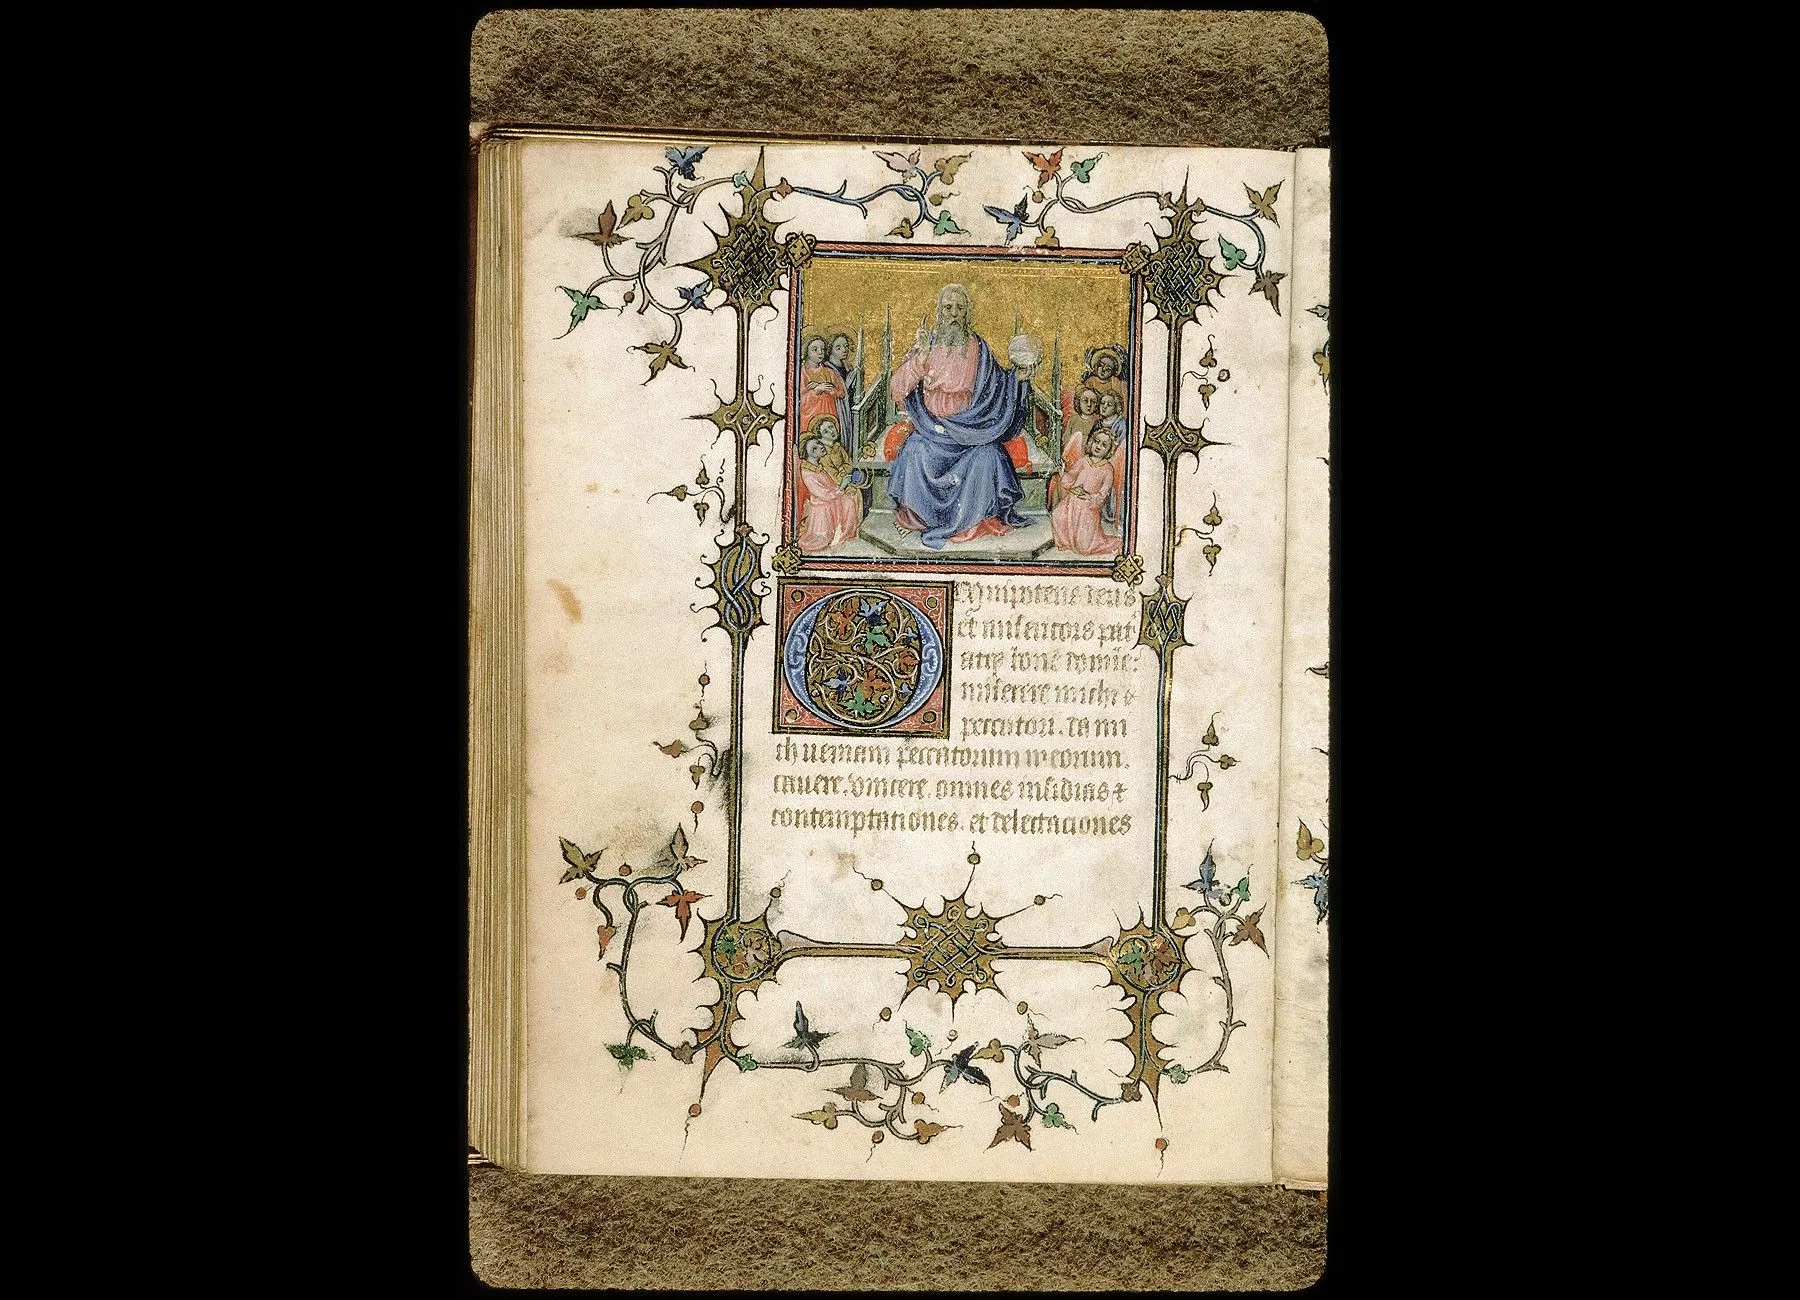 Omnipotens deus
et misericors pat
atq bone domie:
miserere michi &
peccatori. da mi
chi ueniam peccatorum meorum.
cauere. vincere. omnes insidias &
contemptationes. et delectaciones